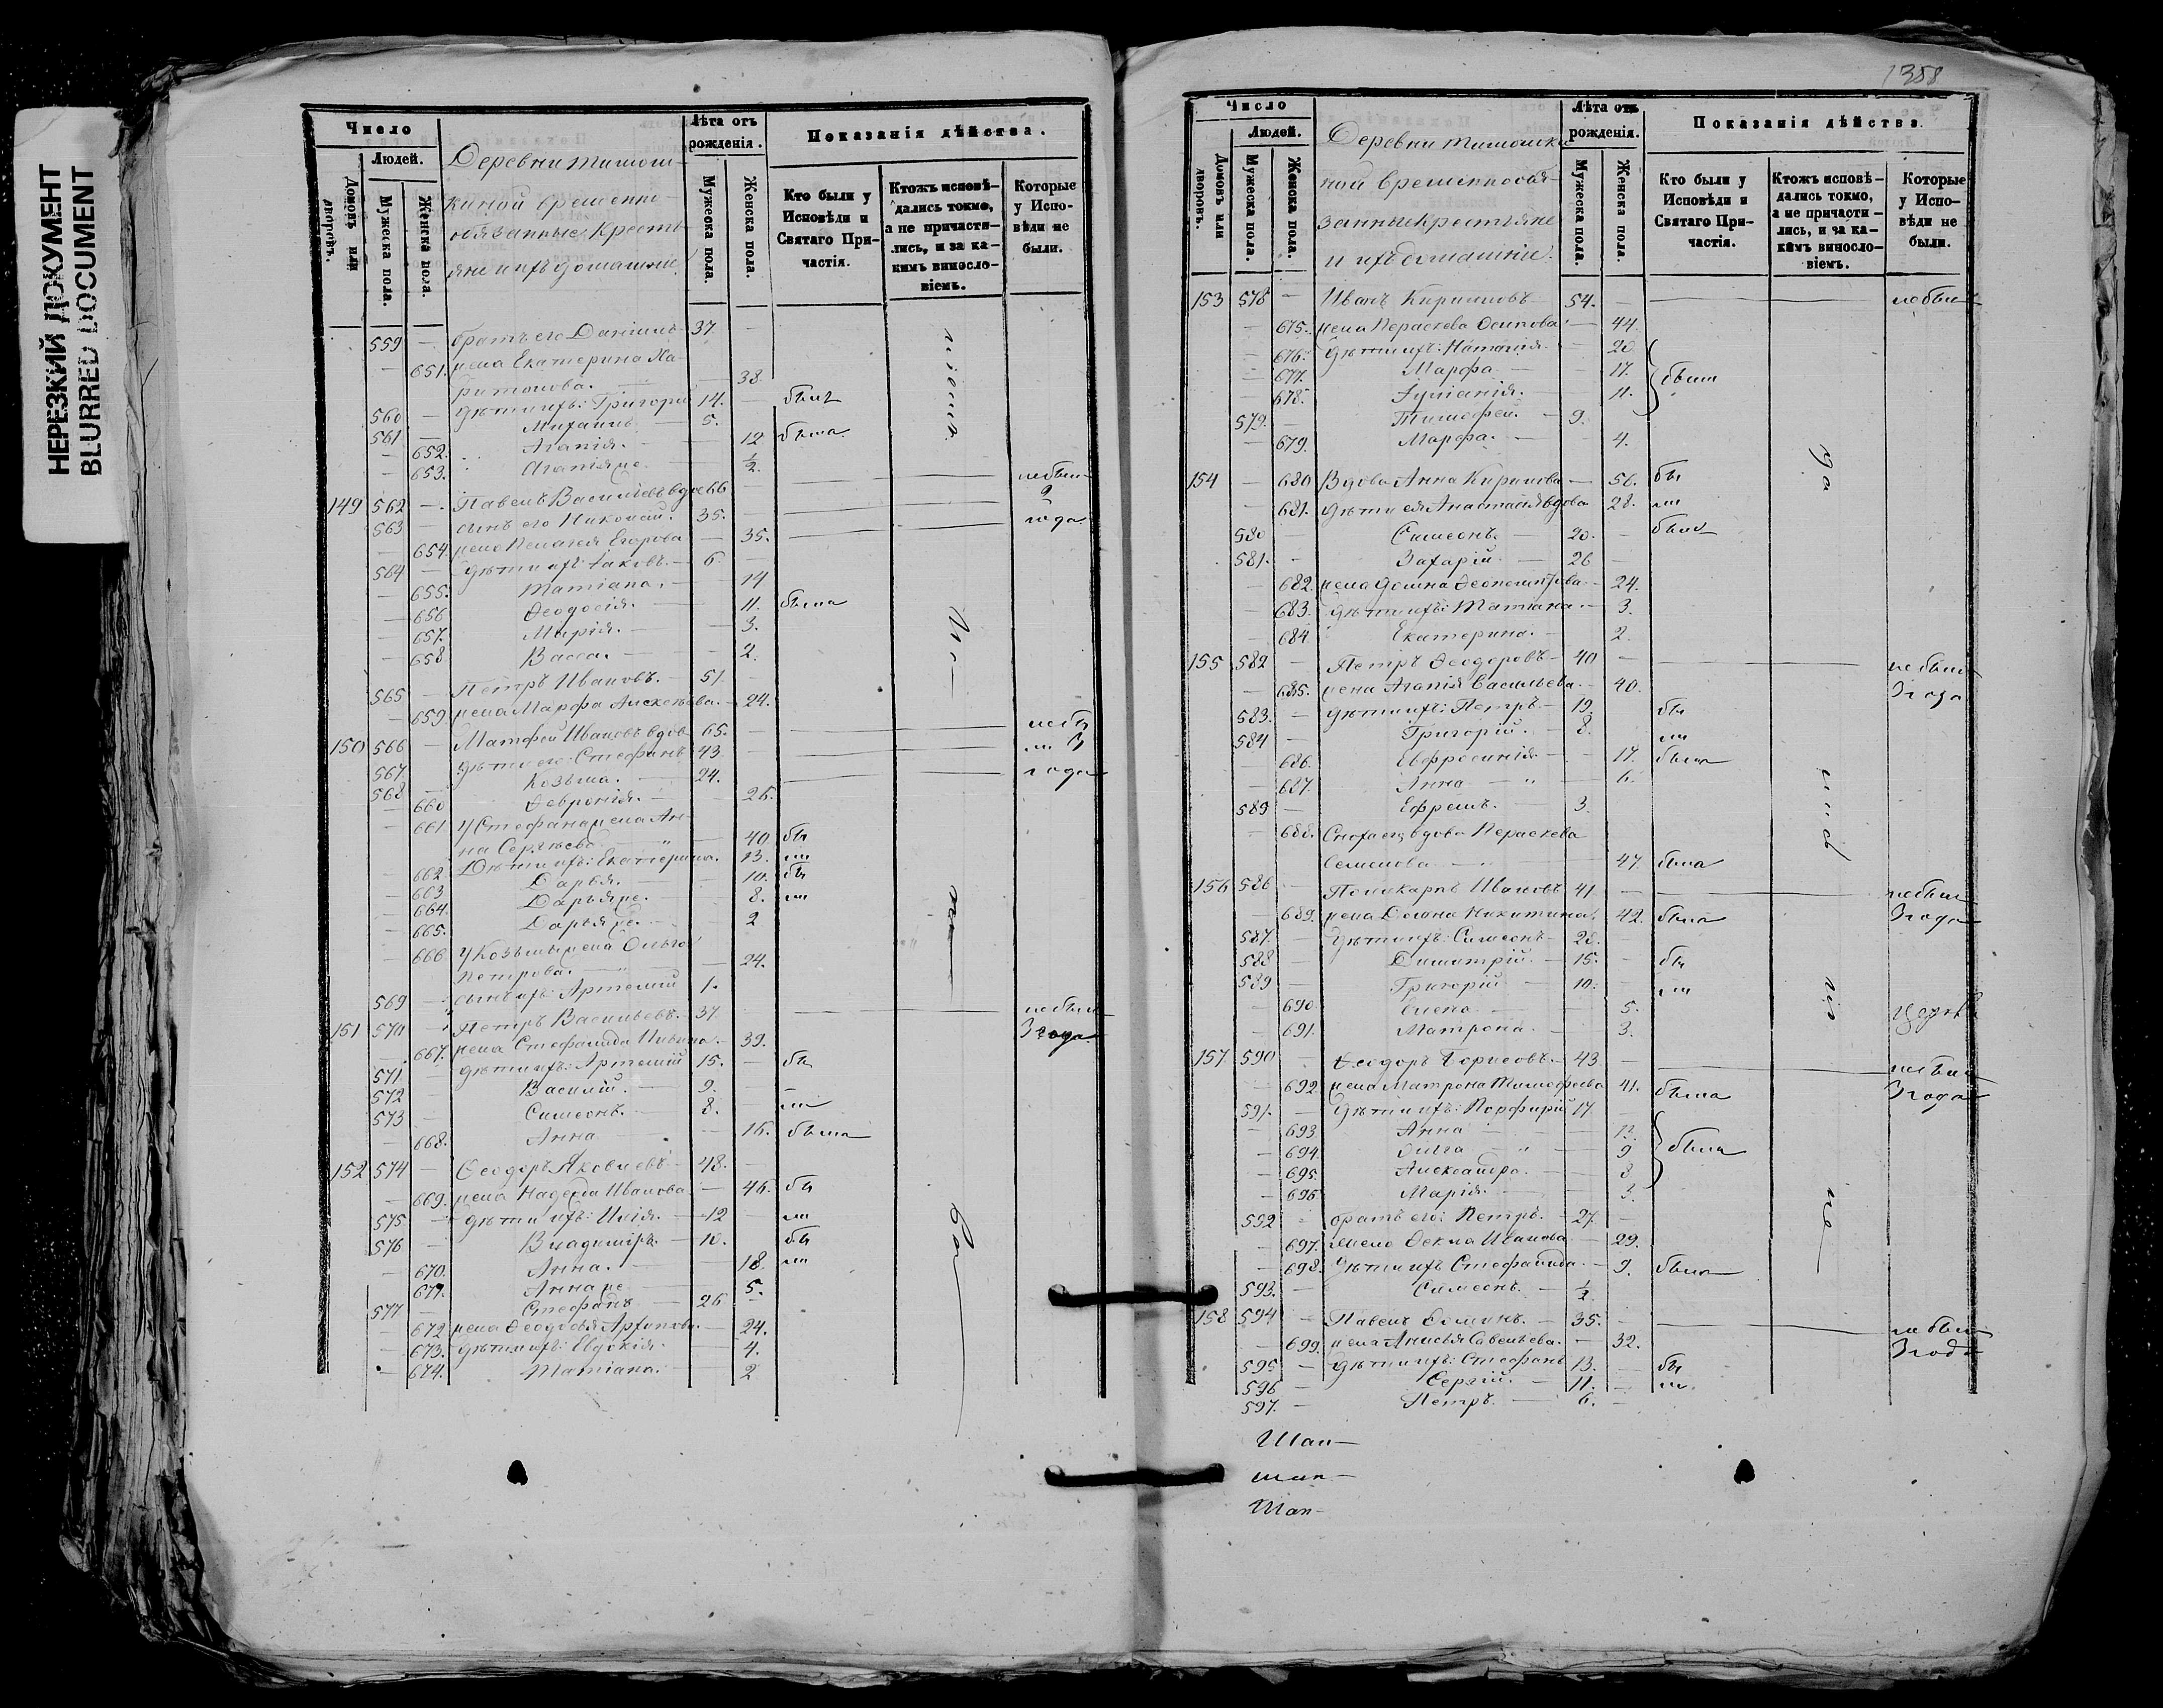 НЕРЕЗКИЙ ДОКУМЕНТ
BLURRED DOCUMENT
Число
Людей.
Домовъ или дворовъ.
Мужеска пола.
Женска пола.
Деревни Тимош-
киной временно-
обязанные Кресть-
яне и ихъ домашніе.
Лѣта отъ рожденія.
Мужеска пола.
Женска пола.
Показанія дѣйства.
Кто были у Исповѣди и Святаго Причастія.
Ктожъ исповѣ-дались токмо, а не причасти-лись, и за ка-кимъ винословіемъ.
Которые у Испо-вѣди не были.
559 — братъ его Даніилъ 37. —
— 651. жена Екатерина Ха-
ритонова. — 38.
560 — дѣти ихъ: Григорій 14. — былъ
561 — Михаилъ — 5.
— 652. Агапія. — 12 была
— 653. Агапія же. — ½.
149 562 — Павелъ Васильевъ вдов 66 — не были
563 — сынъ его Николай. 35. — 2 года
— 654. жена Пелагея Егорова — 35.
564 — дѣти ихъ: Іаковъ. — 6
— 655. Татіана. — 14
— 656 Ѳеодосія. — 11. была
— 657. Марія. — 3.
— 658 Васса. — 2.
565 — Петръ Ивановъ. — 51 —
— 659. жена Марфа Алексѣева. — 24.
150 566 — Матфей Ивановъ вдов 65. — не бы
567. — дѣти его: Стефанъ 43 — ли 3
568 — Козьма. — 24. — года
— 660 Февронія. — 26.
— 661 У Стефана жена Ан-
на Сергѣева — 40 бы
— 662. Дѣти ихъ: Екатерина. 13. ли
— 663 Дарья. — 10. бы
— 664. Дарья же. — 8. ли
— 665. Дарья же. — 2
— 666 У Козьмы жена Ольга
Петрова. — 24.
569 — сынъ ихъ: Артемій 1.
151 570 — Петръ Васильевъ. — 37. — не былъ
— 667. жена Стефанида — 39. 3 года
571 — дѣти ихъ: Артемій 15. — бы
572 — Василій. — 9. —
573 — Симеонъ. — 8. — ли
— 668. Анна — 16. была
152 574 — Ѳеодоръ Яковлевъ — 48. —
— 669. жена Надежда Иванова — 46. бы
575 — дѣти ихъ: Илія. — 12 — ли
576 — Владиміръ. — 10. бы
— 670. Анна. — 18. ли
— 671. Анна же — 5.
577 — Стефанъ — 26 —
— 672 жена Ѳеодосья Архипова. — 24.
— 673. дѣти ихъ: Евдокія. — 4.
— 674. Татіана. — 2
1358
Число
Людей.
Домовъ или дворовъ.
Мужеска пола.
Женска пола.
Деревни Тимошки
ной временнообя-
занные крестьяне
и ихъ домашніе.
Лѣта отъ рожденія.
Мужеска пола.
Женска пола.
Показанія дѣйства.
Кто были у Исповѣди и Святаго При-частія.
Ктожъ исповѣ-дались токмо, а не причасти-лись, и за ка-кимъ винословіемъ.
Которые у Испо-вѣди не были.
153 578 — Иванъ Кириловъ — 54. — не были
— 675. жена Параскева Осипова — 44.
— 676. дѣти ихъ: Наталія. — 20
— 677. Марфа — 17. были
— 678. Іуліанія. — 11.
579. — Тимофей. — 9.
— 679. Марфа. — 4.
154 — 680 Вдова Анна Кирилова — 56. бы
— 681. дѣти ея Анастасія вдова 28. ли
580 — Симеонъ. — 20. — былъ
581. — Захарій. — 26 —
— 682. жена Домна — 24.
— 683. дѣти ихъ: Татіана. — 3.
— 684 Екатерина. — 2.
155 582 — Петръ Ѳеодоровъ — 40 — не были
— 685. жена Агапія Васильева. — 40. 3 года
583. — дѣти ихъ: Петръ — 19. бы
584 — Григорій. — 8. ли
— 686. Евфросинія — 17. была
— 687. Анна — 6.
589 — Ефремъ. — 3.
— 688. вдова Параскева
Семенова — 47. была
156 586 — Поликарпъ Ивановъ 41. — не были
— 689. жена Домна Никитина. 42. была 3 года
587. — дѣти ихъ: Симеонъ — 20. —
588 — Димитрій. — 15. — бы
589 — Григорій — 10. — ли
— 690 Елена — 5.
— 691. Матрона. — 3.
157 590 — Ѳеодоръ Борисовъ. — 43 — не были
— 692 жена Матрона Тимофеева 41. была 3 года
591. — дѣти ихъ: Порфирій 17. —
— 693 Анна — 13.
— 694. Ольга — 9 были
— 695. Александра. — 8
— 696 Марія. — 3.
592 — братъ его: Петръ. — 27. —
— 697. жена Ѳекла Иванова — 29.
— 698. дѣти ихъ Стефанида. — 9. была
593. — Симеонъ. — ½
158 594 — Павелъ — 35. — не были
— 699. жена Анисья Савельева. — 32. 3 года
595 — дѣти ихъ: Стефанъ 13. — бы
596 — Сергій. — 11. — ли.
597. — Петръ. — 6. —